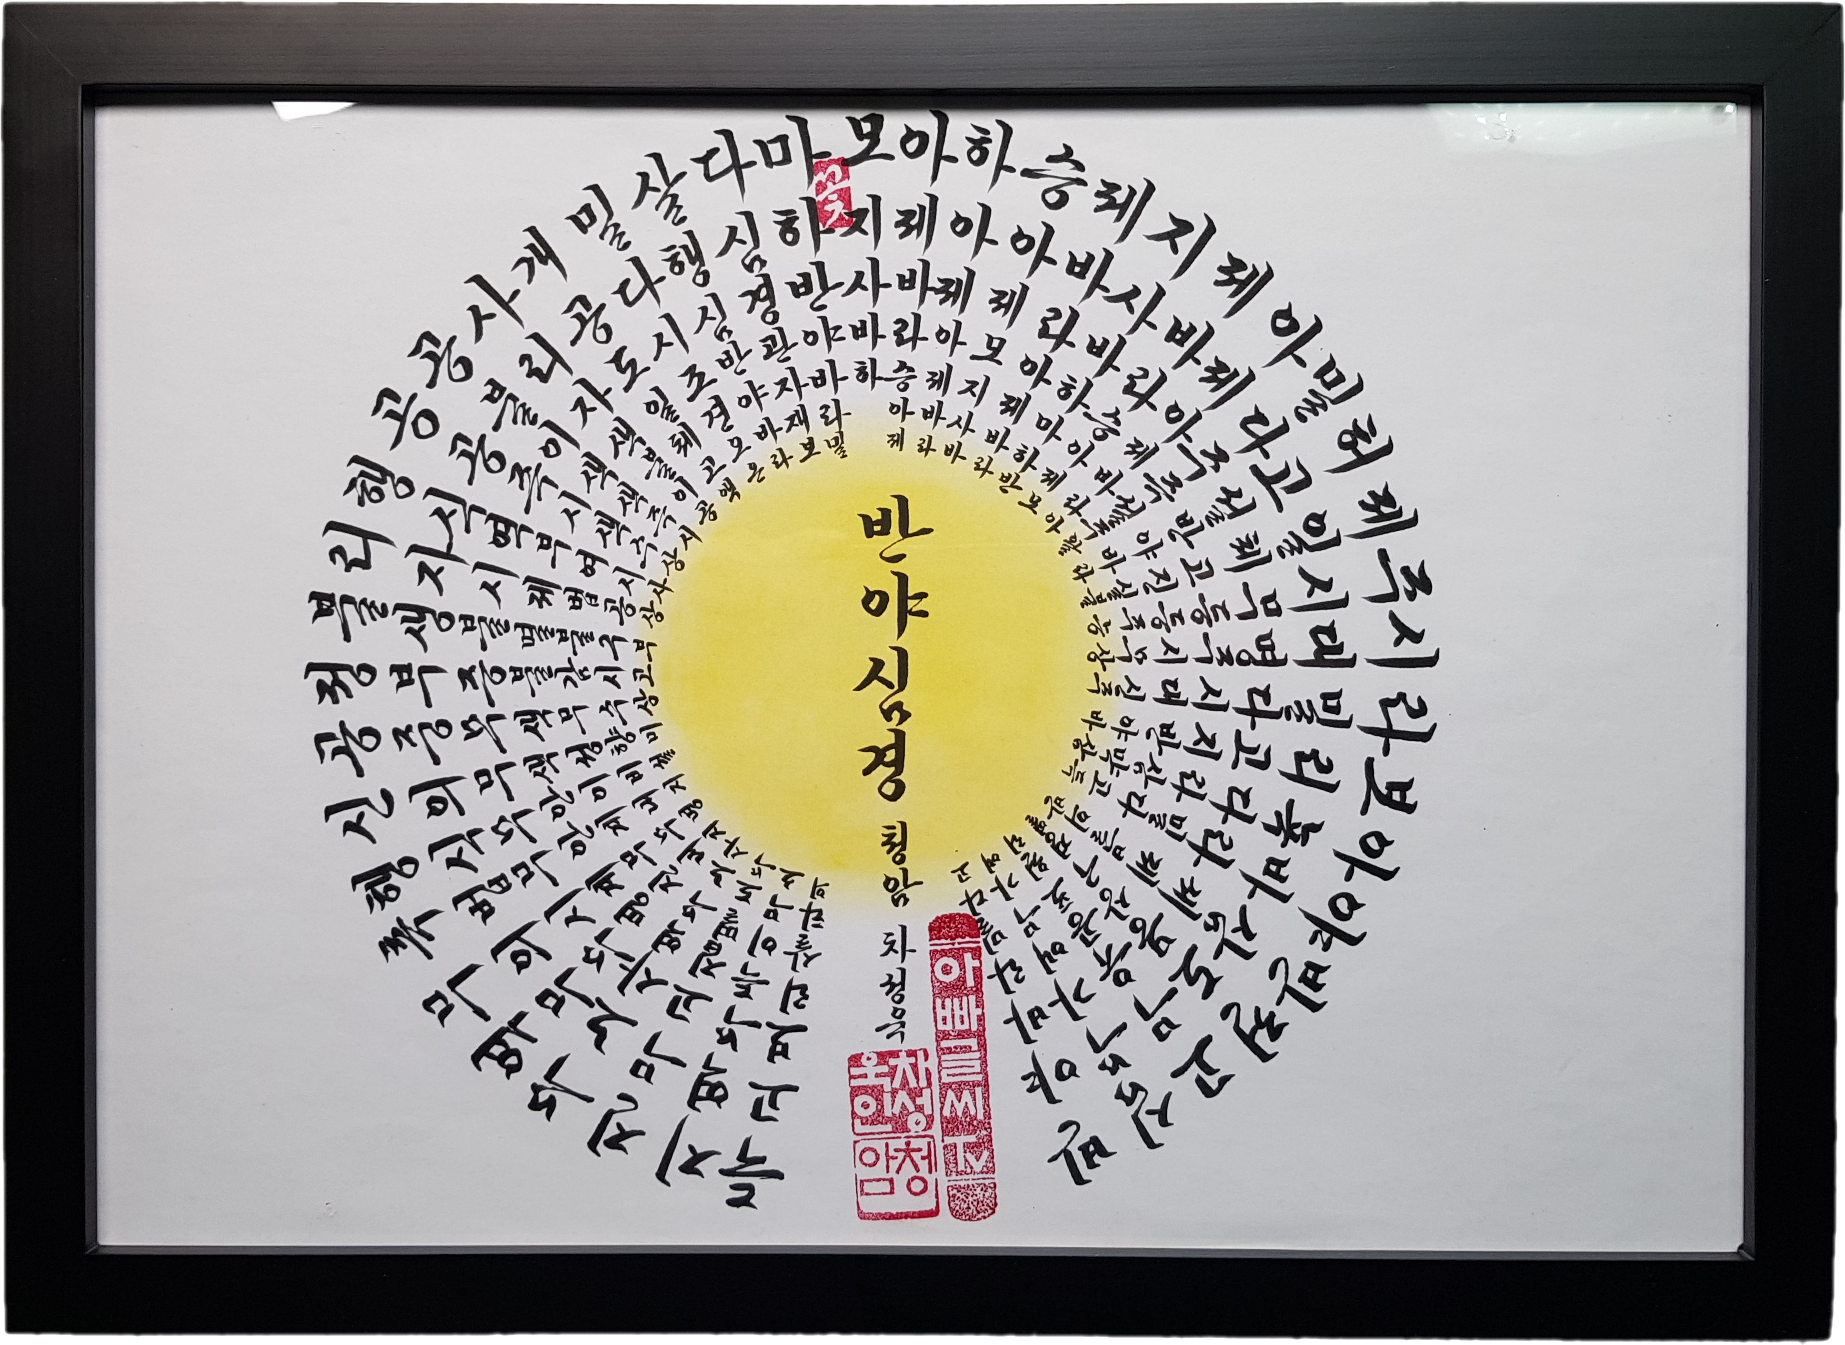 마하반야바라밀
다심경관자재보
살행심반야바라
밀다시조견오온
개공도일체고액
사리자색불이공
공불이색색즉시
공공즉시색수상
행식역부여시사
리자시제법공상
불생불멸불구부
정부증불감시고
공중무색무수상
신의무색성향미
행식무안이비설
촉법무안계내지
무의식계무무명
역무무명진내지
무노사역무노사
진무고집멸도무
지역무득이무소
득고보리살타의
반야바라밀다고
심무가애무가애
고무유공포원리
전도몽상구경열
반삼세제불의반
야바라밀다고득
아뇩다라삼먁삼
보리고지반야바
라밀다시대신주
시대명주시무상
주시무등등주능
제일체고진실불
허고설반야바라
밀다주즉설주왈
아제아제바라아
제바라승아제모
지사바하아제아
제바라아제바라
승아제모지사바
하아제아제바라
아제바라승아제
모지사바하
꽃
반야심경
청암
차성욱
아빠글씨
차성욱인
청암